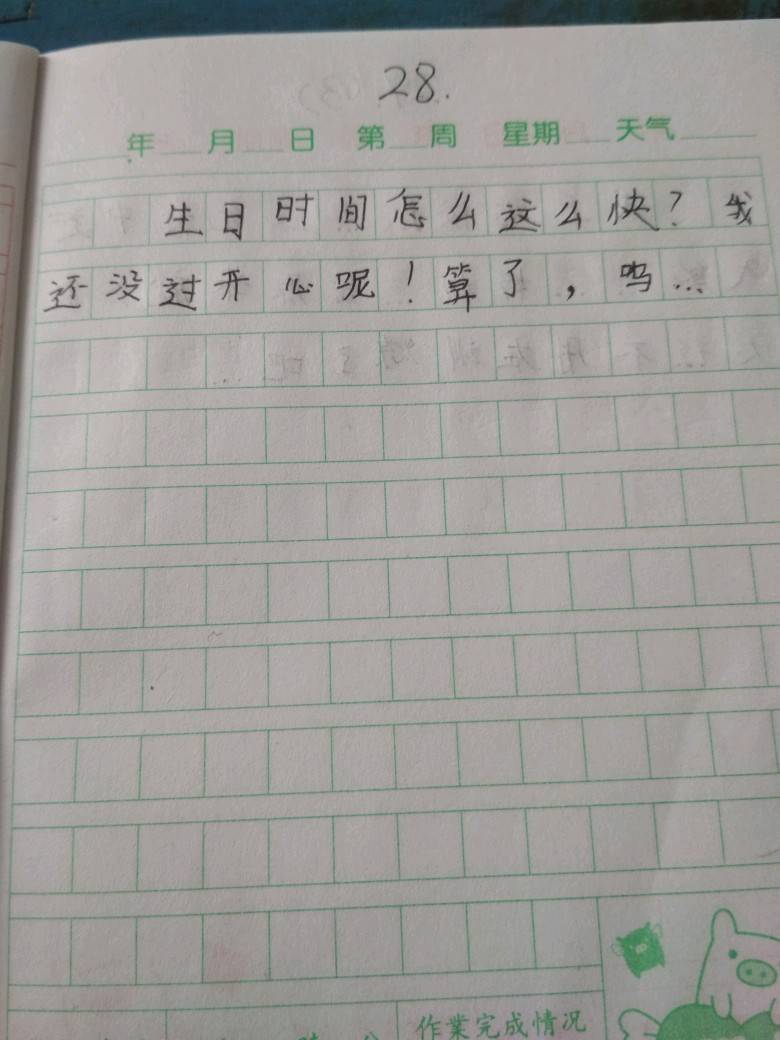 28.
年 月 日 第 周 星期 天气
生日时间怎么这么快？我
还没过开心呢！算了，呜…
作業完成情况